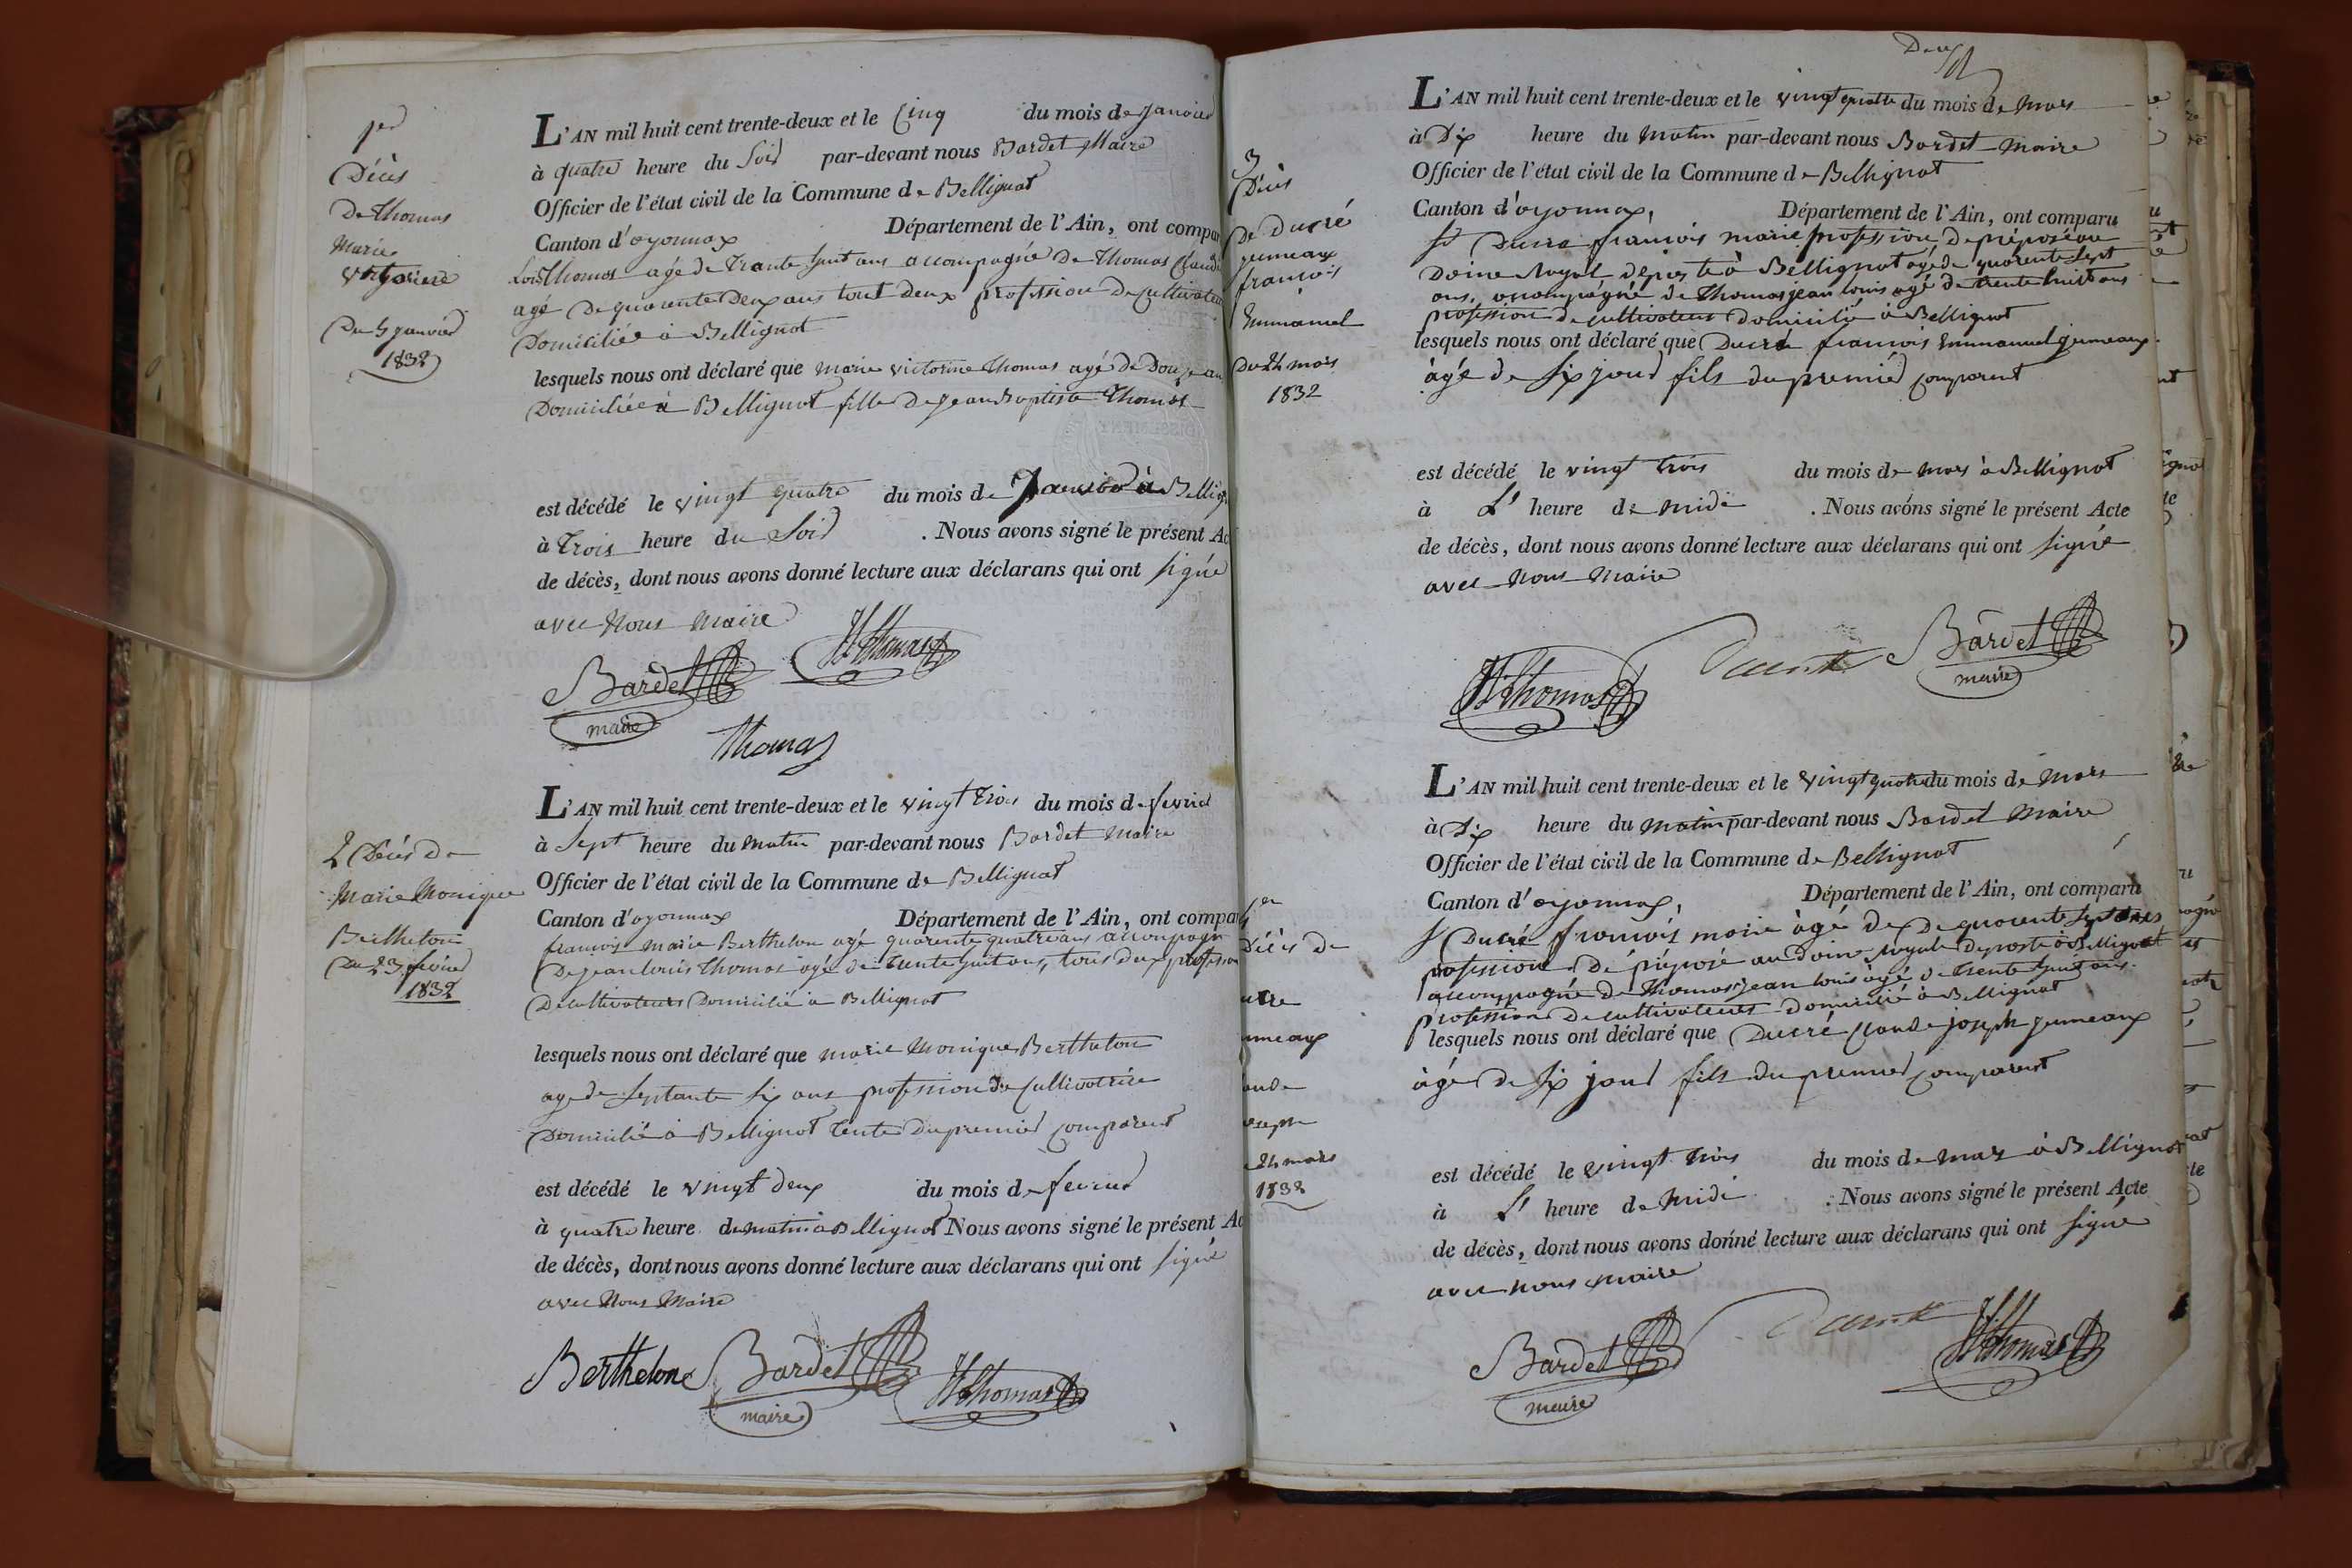 1er
Décès
De Thomas
Marie
victorine
Du 5 janvier
1832
L'AN mil huit cent trente-deux et le Cinq du mois de janvier
à quatre heure du Soir par-devant nous Bardet Maire
Officier de l'état civil de la Commune de Bellignat
Canton d'oyonnax Département de l'Ain, ont compar
Thomas agé de Trante huit ans accompagnée De Thomas Claude
agé De quarente Deux ans tout deux profession De cultivateur
Domiciliée à Bellignat
lesquels nous ont déclaré que marie victorine Thomas agé de Douze an
Domiciliée à Bellignat fille De jean Baptiste Thomas
est décédé le vingt quatre du mois de Janvier à Bellig
à Trois heure du Soir . Nous avons signé le présent Ac
de décès, dont nous avons donné lecture aux déclarans qui ont signé
avec Nous Maire
Bardet
maire
Thomas
Thomas
2 Décès De
Marie Monique
Berthelon
Du 23 fevrier
1832
L'AN mil huit cent trente-deux et le vingt Trois du mois de fevrier
à Sept heure du matin par-devant nous Bardet Maire
Officier de l'état civil de la Commune de Bellignat
Canton d'oyonnax Département de l'Ain, ont compar
francois marie Berthelon agé quarente quatre ans accompagn
De jean louis Thomas agé de trente huit ans, tous deux profession
De cultivateurs Domicilié à Bellignat
lesquels nous ont déclaré que marie Monique Berthelon
age de Septante Six ans profession de Cultivatrice
Domicilié à Bellignat tente Du premier comparent
est décédé le vingt deux du mois de fevrier
à quatre heure du matin à Bellignat Nous avons signé le présent Ac
de décès, dont nous avons donné lecture aux déclarans qui ont signé
avec Nous Maire
Berthelon Bardet Thomas
maire
Deux
3
Décès
De Ducré
jumeaux
francois
Emmanuel
Du 24 mars
1832
L'AN mil huit cent trente-deux et le vingt quatre du mois de Mars
à Dix heure du Matin par-devant nous Bardet Maire
Officier de l'état civil de la Commune de Bellignat
Canton d'oyonnax, Département de l'Ain, ont comparu
Sr Ducré francois marie profession De préposé au
Doine Royal deposte à Bellignat agé de quarente Sept
ans, accompagné de Thomas jean louis agé de trente huit ans
profession de cultivateur Domicilié à Bellignat
lesquels nous ont déclaré que Ducré francois Emmanuel jumeaux
àgé de Six jour fils du premier comparent
est décédé le vingt trois du mois de mars à Bellignat
à L' heure de midi . Nous avons signé le présent Acte
de décès, dont nous avons donné lecture aux déclarans qui ont signé
avec Nous Maire
Thomas Ducré Bardet
maire
Décès De
ucre
umeaux
aude
oseph
24 mars
1832
L'AN mil huit cent trente-deux et le vingt quatre du mois de Mars
à Dix heure du matin par-devant nous Bardet Maire
Officier de l'état civil de la Commune de Bellignat
Canton d'oyonnax, Département de l'Ain, ont comparu
Sr Ducré francois marie àgé de De quarente Sept ans
profession De préposé au doine Royale deposte à Bellignat
accompagné De Thomas jean louis àgé de trente huit ans
profession De cultivateur domicilié à Bellignat
lesquels nous ont déclaré que Ducré Claude joseph jumeaux
àgé de Six jour fils du premier comparent
est décédé le vingt trois du mois de mars à Bellignat
à L' heure de Midi . Nous avons signé le présent Acte
de décès, dont nous avons donné lecture aux déclarans qui ont signé
avec nous maire
Bardet Ducré Thomas
maire